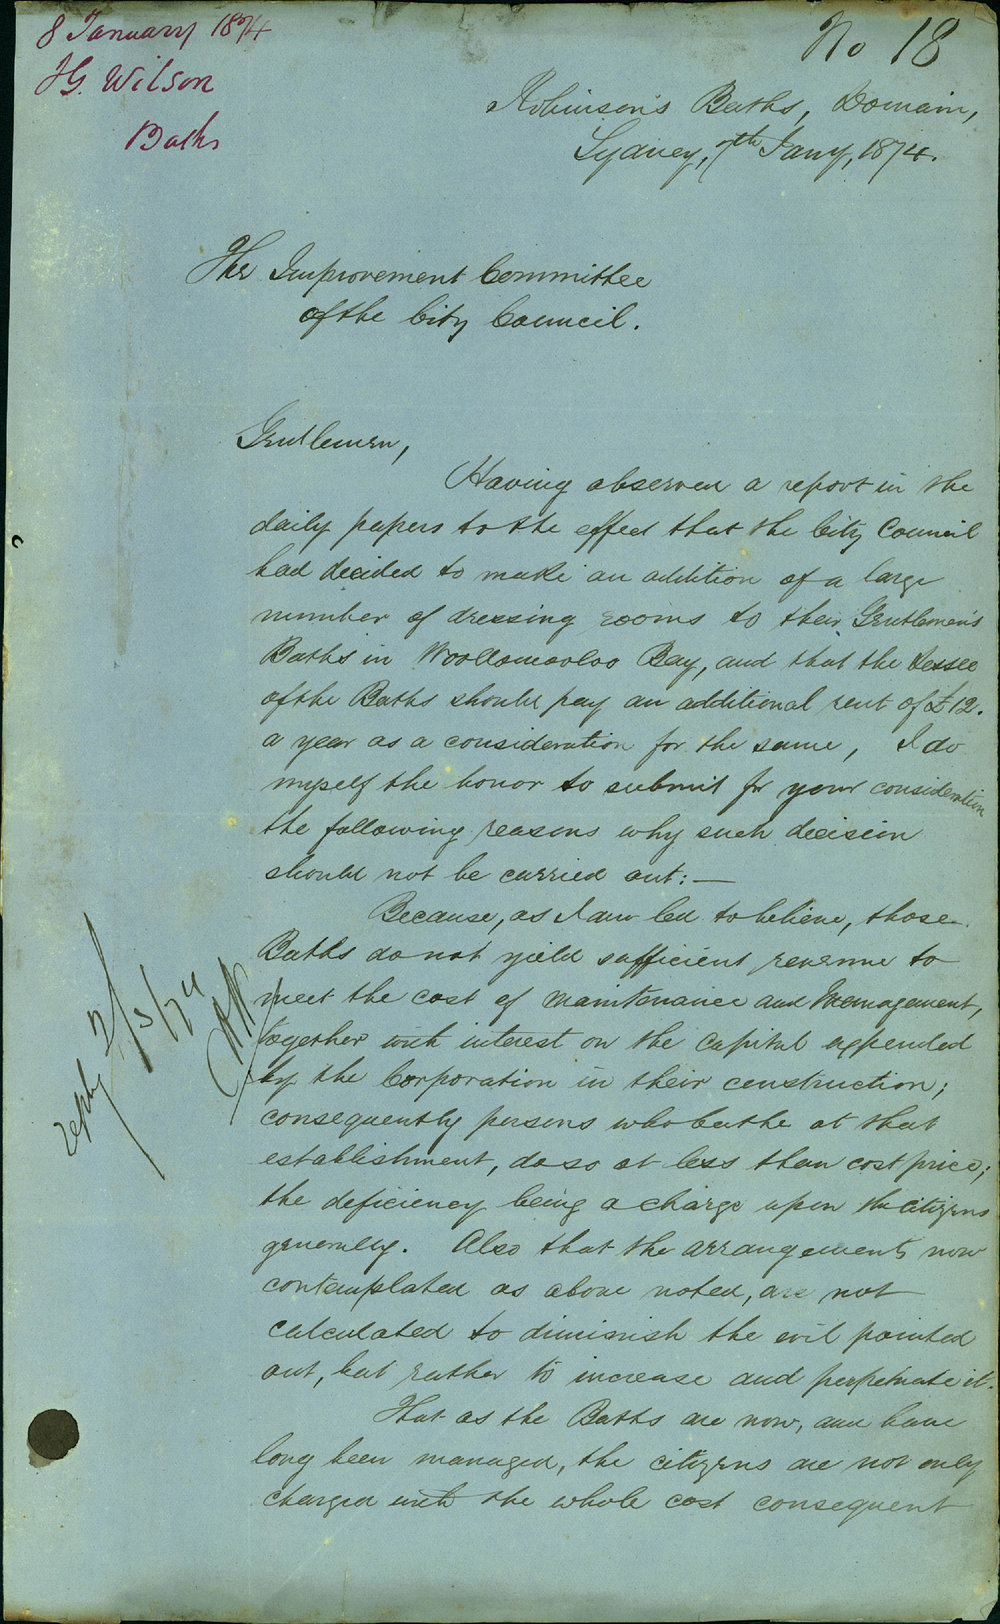 8 January 1874
No 18
J G. Wilson
Baths
Robinson's Baths, Domain,
Sydney, 7th Jany, 1874.
The Improvement Committee
of the City Council.
Gentlemen,
Having observed a report in the
daily papers to the effect that the City Council
had decided to make an addition of a large
number of dressing rooms to their Gentlemen's
Baths in Woolloomooloo Bay, and that the Lessee
of the Baths should pay an additional rent of £12.
a year as a consideration for the same, I do
myself the honor to submit for your consideration
the following reasons why such decision
should not be carried out:—
Because, as I am led to believe, those
Baths do not yield sufficient revenue to
meet the cost of maintenance and Management,
together with interest on the Capital expended
by the Corporation in their construction;
consequently persons who bathe at that
establishment, do so at less than cost price;
the deficiency being a charge upon the citizens
generally. Also that the arrangements now
contemplated as above noted, are not
calculated to diminish the evil pointed
out, but rather to increase and perpetuate it.
That as the Baths are now, and have
long been managed, the citizens are not only
charged with the whole cost consequent
reply 2/3/74